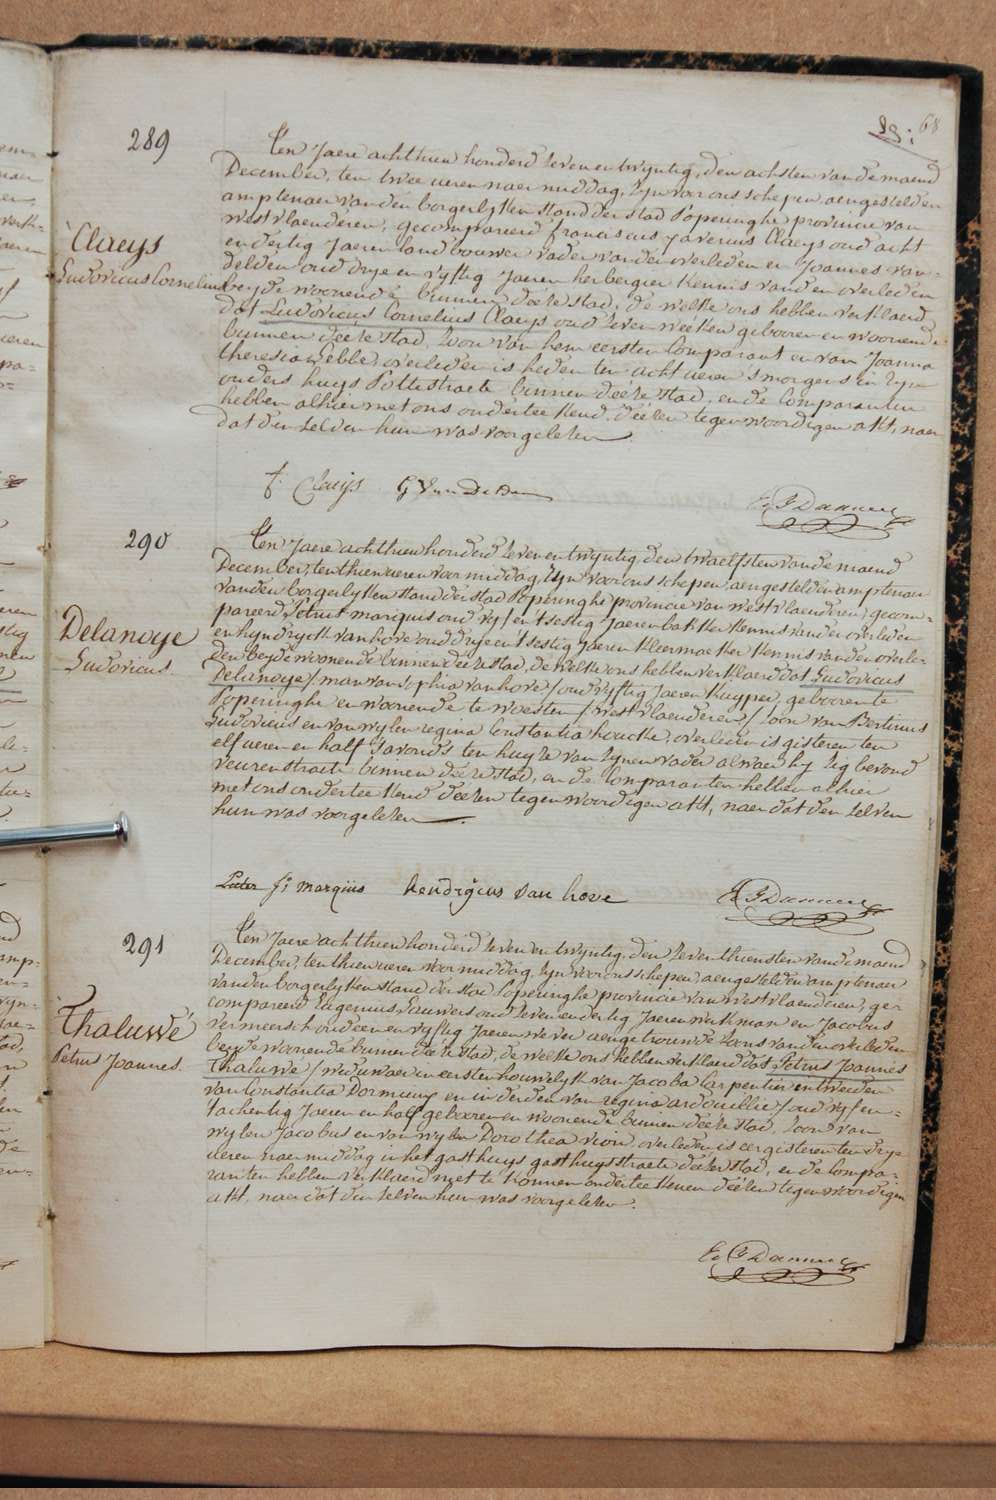 68
289
Ten Jaere achthien honderd zeven en twijntig, den achsten van de maend
December, ten twee ueren naer middag, zijn voor ons schepen aengestelden
amptenaer van den borgerlyken stand der stad Poperinghe provincie van
westvlaenderen, gecompareerd franciscus xaverius Claeys oud acht
en dertig Jaeren landbouwer vader van den overleden en Joannes van-
delden oud drye en vyftig Jaeren herbergier kennis van den overleden
Claeys
Ludovicus Cornelius
beyde woonende binnen deéze stad, de welke ons hebben verklaerd
dat Ludovicus Cornelius Claeys oud zeven weéken gebooren en woonende
binnen deéze stad, zoon van hem eersten Comparant en van Joanna
theresia Lebbe, overleden is heden ten acht ueren smorgens in zyn
ouders huys Pottestraete binnen deéze stad, en de Comparanten
hebben alhier met ons onderteékend deézen tegenwoordigen akt, naer
dat den zelven hun was voorgelezen
f. Claeys G VanDelden
290
Ten Jaere achthien honderd zeven en twijntig, den twaelfsten van de maend
December, ten thien ueren voor middag, zijn voor ons schepen, aengestelden amptenaer
van den borgerlyken stand der stad Poperinghe provincie van westvlaenderen, gecom-
pareerd Petrus marquis oud vyf en tsestig Jaeren bakker kennis van den overleden
en hyndryck van hove oud drye en tsestig Jaeren kleermaeker kennis van den overle-
Delanoye
Ludovicus.
den beyde woonende binnen deéze stad, de welke ons hebben verklaerd dat Ludovicus
Delanoye / man van sophia vanhove / oud vyftig Jaeren kuyper, gebooren te
Poperinghe en woonende te woesten / westvlaenderen / zoon van Bertinus
Ludovicus en van wylen regina Constantia houcke, overleden is gisteren ten
elf ueren en half savonds ten huyze van zynen vader alwaer hy zig bevond
veurenstraete binnen deéze stad, en de Comparanten hebben alhier
met ons onderteékend deézen tegenwoordigen akt, naer dat den zelven
hun was voorgelezen
Pieter fi marqiis hendrijcus van hove
291
Ten Jaere achthien honderd zeven en twijntig, den zeventhiensten van de maend
December, ten thien ueren voor middag, zijn voor ons schepen, aengestelden amptenaer
van den borgerlyken stand der stad Poperinghe provincie van westvlaenderen, ge-
compareerd Eugenius Lauwers oud zeven en dertig Jaeren werkman en Jacobus
vermeersch oud een en vyftig Jaeren wever aengetrouwde zoons van den overleden
Thaluwé
Petrus Joannes.
beyde woonende binnen deéze stad, de welke ons hebben verklaerd dat Petrus Joannes
Thaluwé / weduwaer in eersten houwelyk van Jacoba Carpentier en tweeden
van Constantia Dormieux en in derden van regina ardouillie / oud vyf en-
tachentig Jaeren en half gebooren en woonende binnen deéze stad, zoon van
wylen Jacobus en van wylen Dorothea vion, overleden is eergisteren ten drye
ueren naer middag in het gasthuys gasthuysstraete deézer stad, en de Compa-
ranten hebben verklaerd niet te konnen onderteékenen deézen tegenwoordigen
akt, naer dat den zelven hun was voorgelezen.